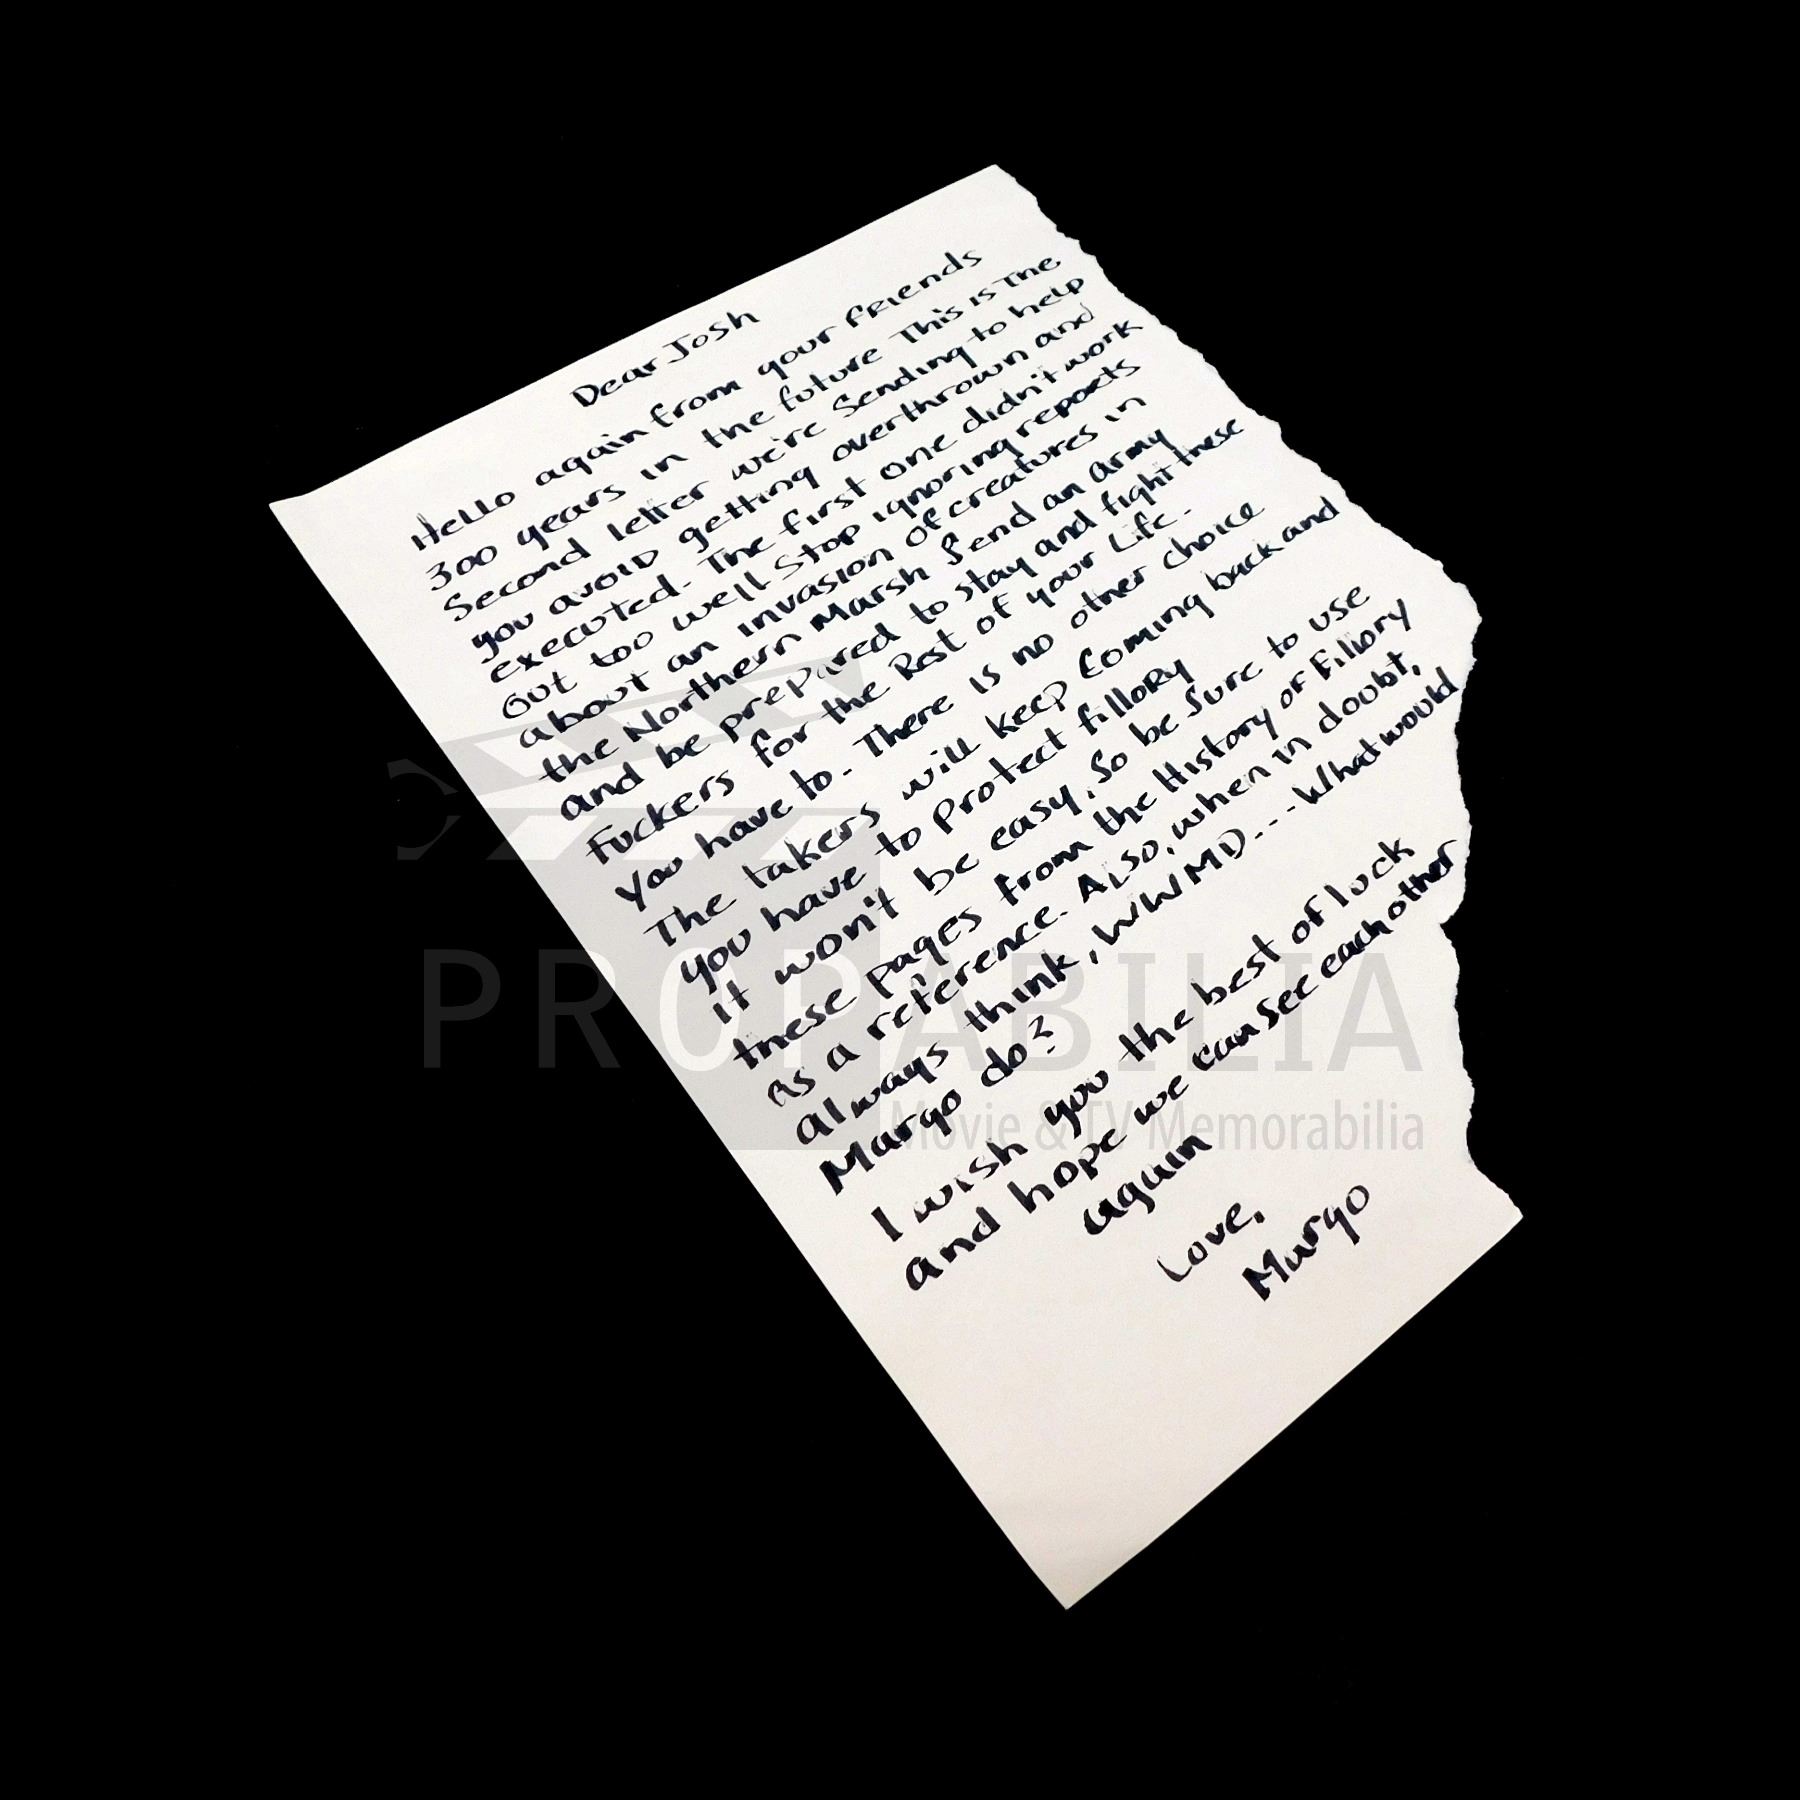 Dear Josh
Hello again from your friends
300 years in the future This is The
Second letter we're Sending to help
you avoid getting overthrown and
executed. The first one didn't work
out too well. Stop ignoring reports
about an invasion of creatures in
the Northern Marsh Send an Army
and be prepared to stay and fight these
Fuckers for the Rest of your Life.
You have to. There is no other choice
The takers will keep coming back and
you have to protect fillory
It won't be easy, So be sure to use
these pages from the History of Fillory
as a reference. Also, when in doubt,
Always think, WWMD---What would
Margo do?
I wish you the best of luck
and hope we can see each other
again
Love,
Margo
PROPABILIA
Movie & TV Memorabilia